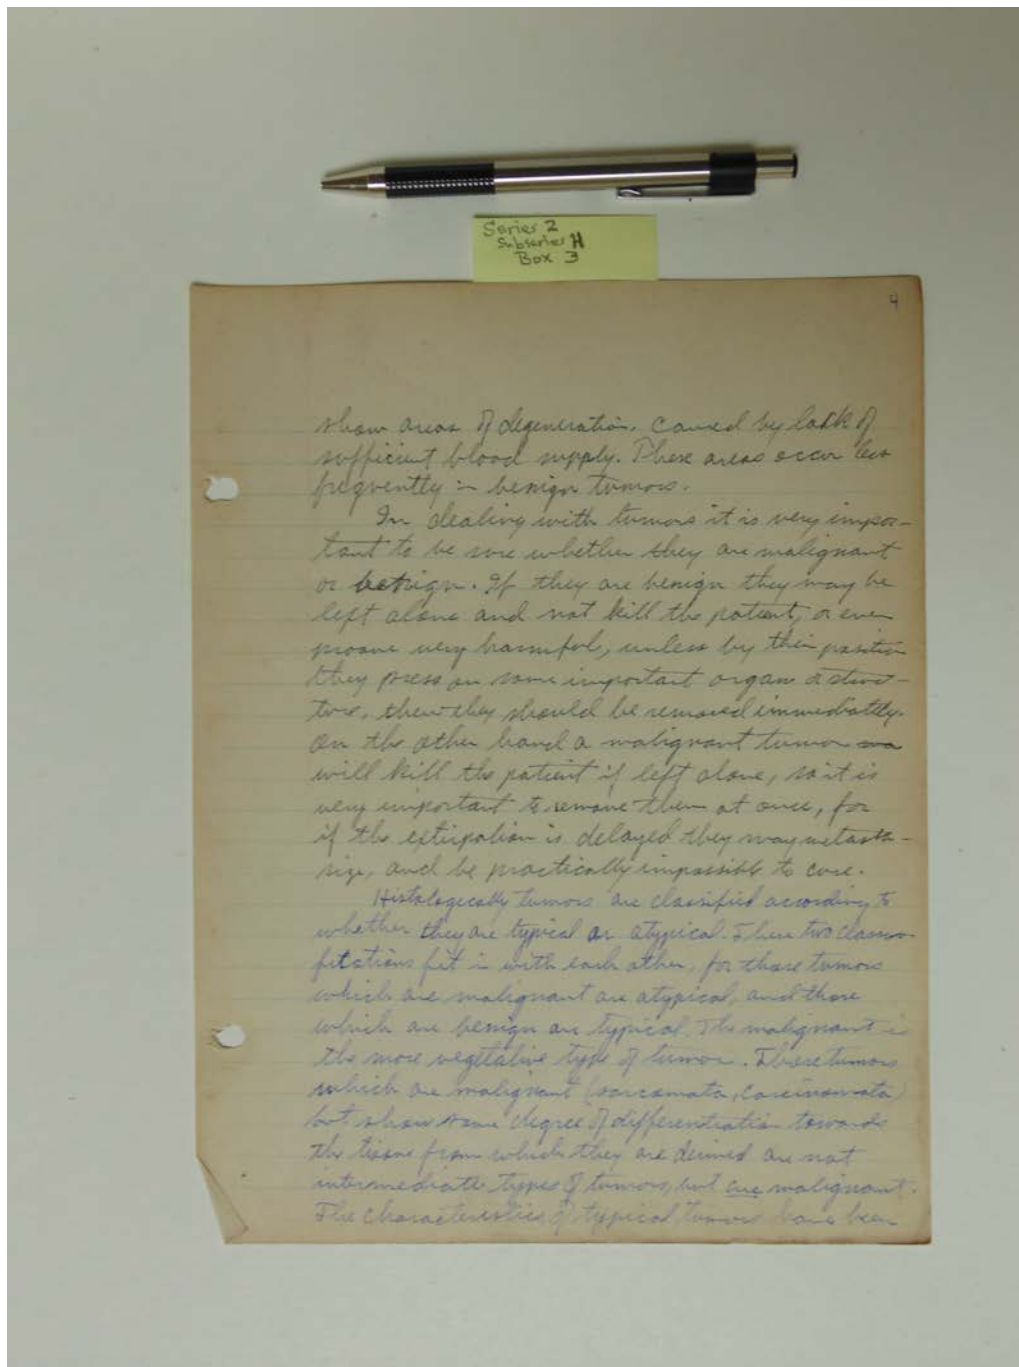 Series 2
Subseries H
Box 3
4
show areas of degeneration, caused by lack of
sufficient blood supply. These areas occur less
frequently in benign tumors.
In dealing with tumors it is very impor-
tant to be sure whether they are malignant
or benign. If they are benign they may be
left alone and not kill the patient, or even
prove very harmful, unless by their position
they press on some important organ or struc-
ture, then they should be removed immediately.
On the other hand a malignant tumor
will kill the patient if left alone, so it is
very important to remove them at once, for
if the extirpation is delayed they may metasta-
size, and be practically impossible to cure.
Histologically tumors are classified according to
whether they are typical or atypical. These two classi-
fications fit in with each other, for those tumors
which are malignant are atypical, and those
which are benign are typical. The malignant is
the more vegetative type of tumor. Those tumors
which are malignant (sarcomata, carcinomata)
but show some degree of differentiation towards
the tissue from which they are derived are not
intermediate types of tumors, but are malignant.
The characteristics of typical tumors have been